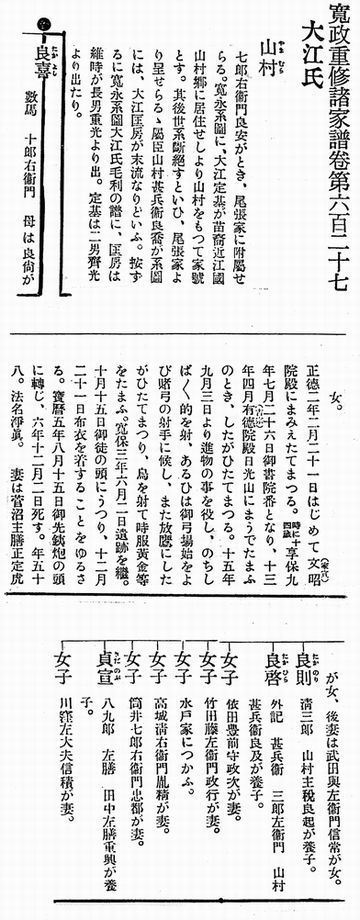 寛政重修諸家譜巻第六百二十七
大江氏
山村
やまむら
七郎右衞門良安がとき、尾張家に附屬せ
らる。寛永系圖に、大江定基が苗裔近江國
山村鄕に居住せしより山村をもつて家號
とす。其後世系斷絕すといひ、尾張家よ
り呈せらるゝ屬臣山村甚兵衞良喬が系圖
には、大江匡房が末流なりといふ。按ず
るに寛永系圖大江氏毛利の譜に、匡房は
維時が長男重光より出。定基は二男齊光
より出たり。
良喜
たかよし
數馬 十郎右衞門 母は良尙が
女。
正德二年二月二十一日はじめて文昭
(家宣)
院殿にまみえたてまつる。時に十四歲 享保九
年七月二十六日御書院番となり、十三
年四月有德院殿日光山にまうでたまふ
(吉宗)
のとき、したがひたてまつる。十五年
九月三日より進物の事を役し、のちし
ば〱的を射、あるひは御弓場始をよ
び賭弓の射手に候し、また放鷹にした
がひたてまつり、鳥を射て時服黃金等
をたまふ。寛保三年六月二日遺跡を繼。
十月十五日御徒の頭にうつり、十二月
二十一日布衣を着することをゆるさ
る。寶曆五年八月十五日御先鐵炮の頭
に轉じ、六年十二月二日死す。年五十
八。法名淨眞。 妻は菅沼主膳正定虎
が女、後妻は武田與左衞門信常が女。
良則
たかのり
淸三郎 山村主稅良起が養子。
良啓
たかひら
外記 甚兵衞 三郎左衞門 山村
甚兵衞良及が養子。
女子
依田豊前守政次が妻。
女子
竹田藤左衞門政行が妻。
女子
水戶家につかふ。
女子
高城淸右衞門胤精が妻。
女子
筒井七郎右衞門忠都が妻。
貞宣
さだのぶ
八九郎 左膳 田中左膳重興が養
子。
女子
川窪左大夫信積が妻。